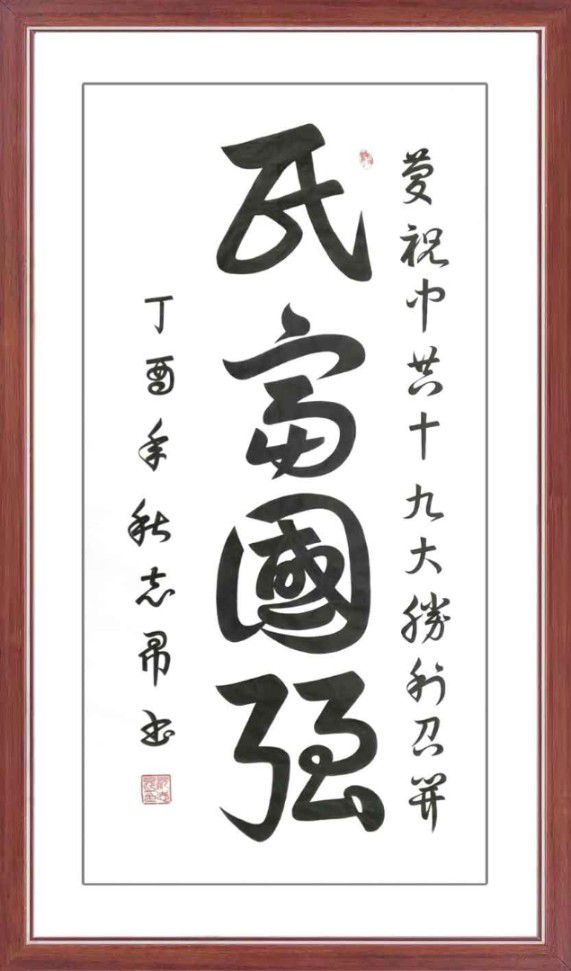 慶祝中共十九大勝利召開
民富國強
丁酉年秋志昂书